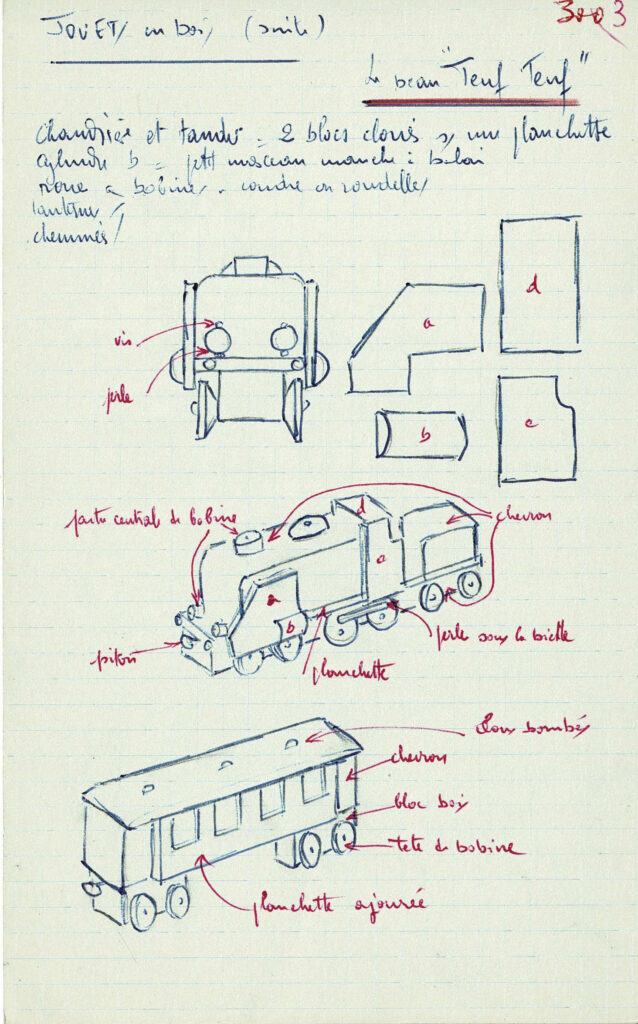 3003
JOUETS en bois (suite)
Le beau "Teuf Teuf"
Chaudière et tender = 2 blocs cloués s/ une planchette
Cylindre b = petit morceau manche à balai
roue = bobines à coudre en rondelles
lanternes
cheminées
d
a
vis
perle
b
c
partie centrale de bobine
d
chevron
a
c
b
piton
perle sous la bielle
planchette
Clous bombés
chevron
bloc bois
tete de bobine
planchette ajourée